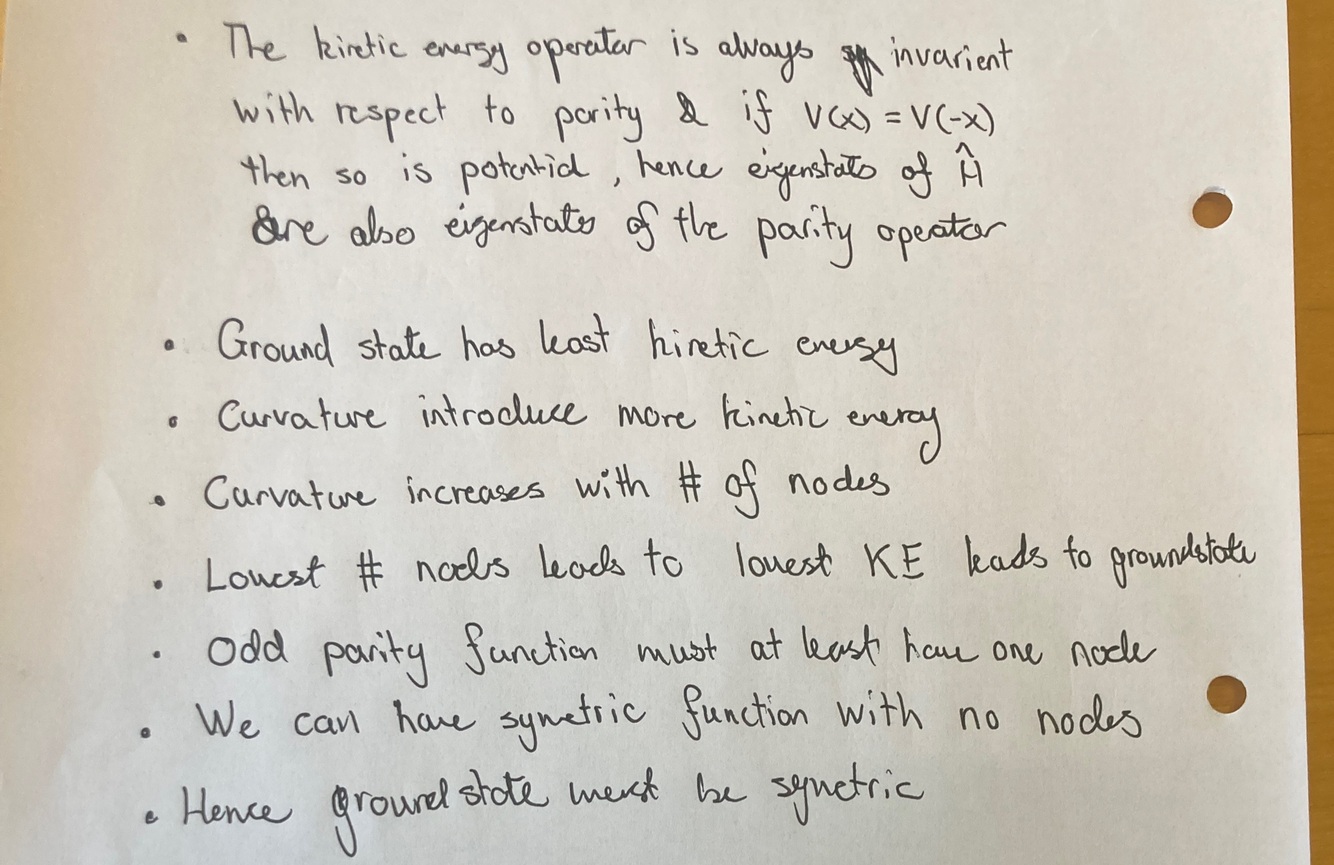 • The kinetic energy operator is always invarient
with respect to parity & if V(x) = V(-x)
then so is potential, hence eigenstates of Ĥ
are also eigenstates of the parity operator
• Ground state has least kinetic energy
• Curvature introduce more kinetic energy
• Curvature increases with # of nodes
• Lowest # nodes leads to lowest KE leads to groundstate
• Odd parity function must at least have one node
• We can have symetric function with no nodes
• Hence ground state must be symetric